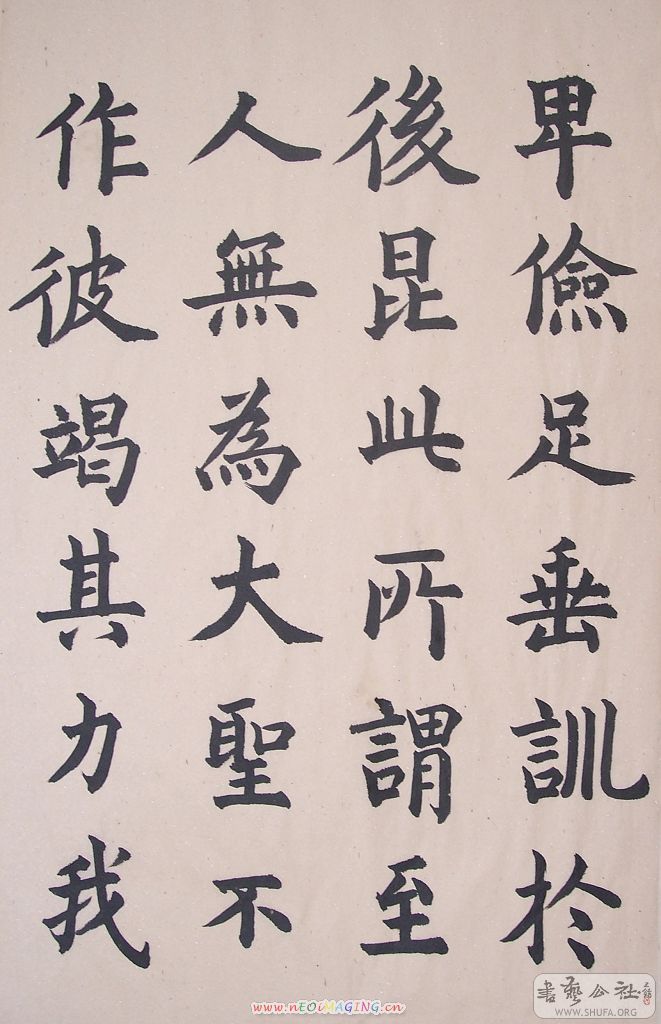 卑儉足垂訓於
後昆此所謂至
人無為大聖不
作彼竭其力我
www.nEOiMAGING.cn
書藝公社
WWW.SHUFA.ORG